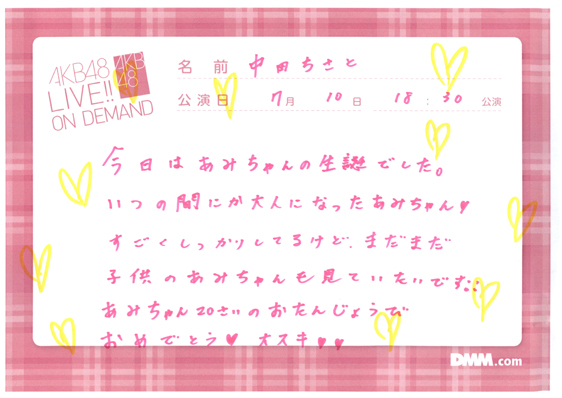 AKB48
LIVE!!
ON DEMAND
AKB
48
名 前 中田ちさと
公演日 7月 10日 18:30 公演
今日はあみちゃんの生誕でした。
いつの間にか大人になったあみちゃん♡
すごくしっかりしてるけど、まだまだ
子供のあみちゃんも見ていたいです。
あみちゃん20さいのおたんじょうび
おめでとう♥ 大スキ♥♥
DMM.com